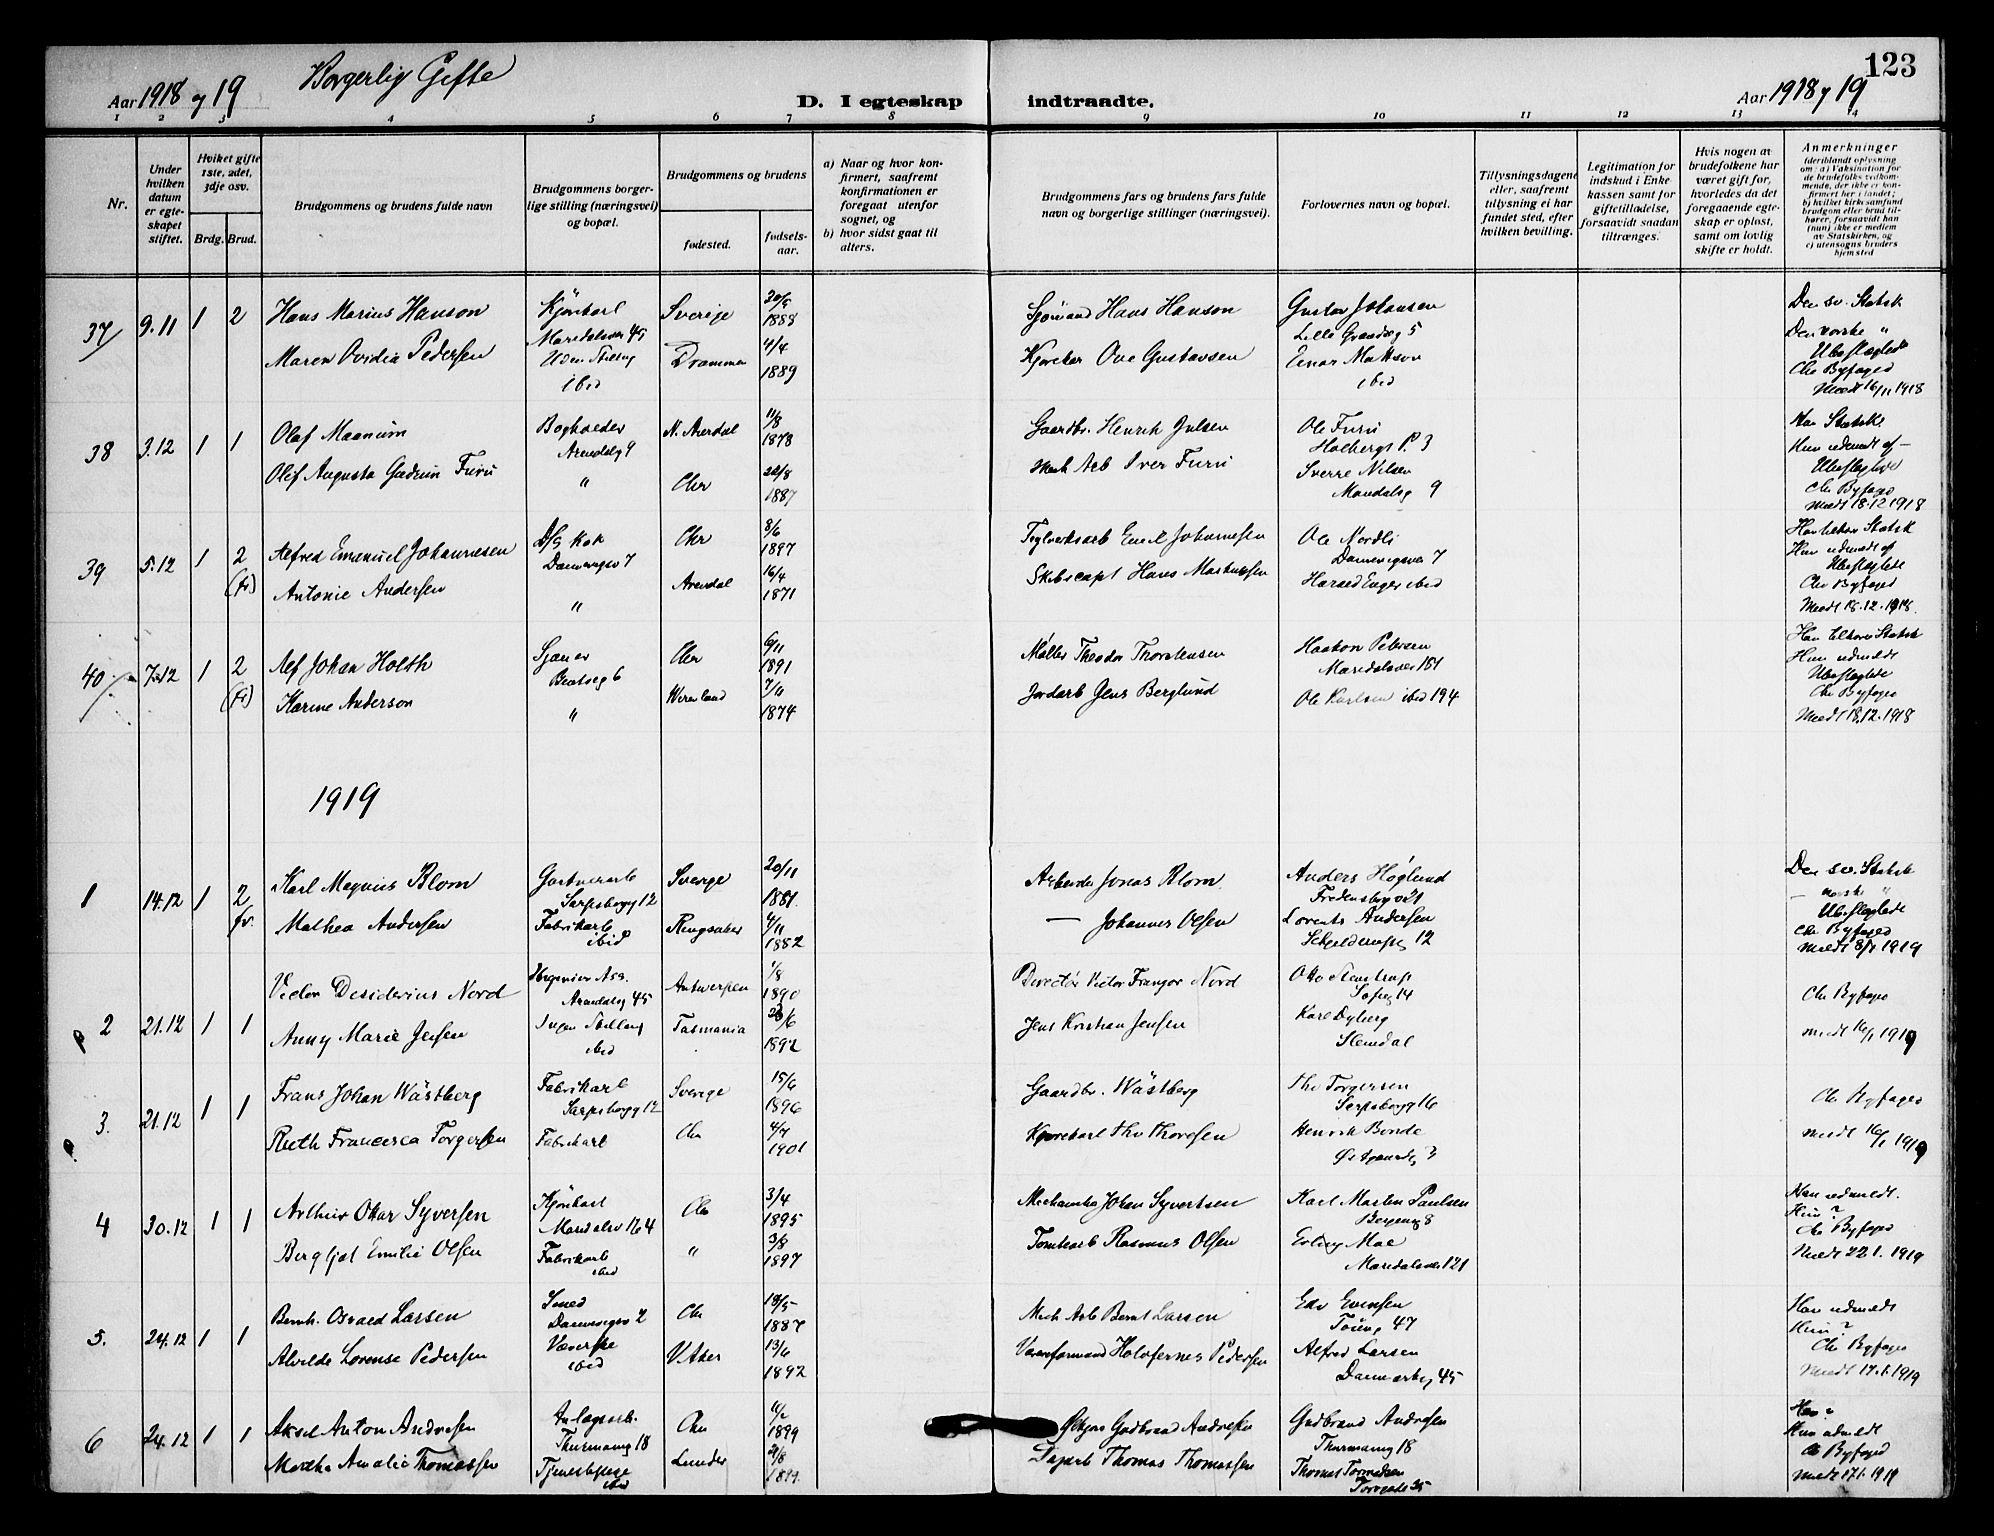 123
Aar 1918 og 19
Borgerlig Gifte
D. I egteskap indtraadte.
Aar 1918 og 19
1 2 3 4 5 6 7 8 9 10 11 12 13 14
Nr.
Under hvilken datum er egteskapet stiftet.
Hviket gifte 1ste, 2det, 3dje osv.
Brdg. Brud.
Brudgommens og brudens fulde navn
Brudgommens borgerlige stilling (næringsvei) og bopæl.
Brudgommens og brudens
fødested. fødselsaar.
a) Naar og hvor konfirmert, saafremt konfirmationen er foregaat utenfor sognet, og
b) hvor sidst gaat til alters.
Brudgommens fars og brudens fars fulde navn og borgerlige stillinger (næringsvei).
Forlovernes navn og bopæl.
Tillysningsdagene eller, saafremt tillysning ei har fundet sted, efter hvilken bevilling.
Legitimation for indskud i Enkekassen samt for giftetilladelse, forsaavidt saadan tiltrænges.
Hvis nogen av brudefolkene har været gift før, hvorledes da det foregaaende egteskap er opløst, samt om lovlig skifte er holdt.
Anmerkninger
(deriblandt oplysning om: a) Vaksination for de brudefolks vedkommende, der ikke er konfirmert her i landet; b) hvilket kirkesamfund brudgom eller brud tilhører, forsaavidt han (hun) ikke er medlem av Statskirken, og c) utensogns bruders hjemsted
37 9.11 1 2
Hans Marius Hanson
Maren Ovidia Pedersen
Kjørekarl
Maridalsvei 45
Uden Stilling
ibid
Sverige
Drammen
1889
Sjømand Hans Hanson
Kjørekar Ove Gustavsen
Gustav Johansen
Lille Grændsg 5
Einar Mattson
ibid
Den sv. Statsk
Den norske "
Ubeslægtede
Chr Byfoged
Meedt 16/11 1918
38 3.12 1 1
Olaf Maanum
Olef Augusta Gudrun Furu
Bogholder
Arendalsg 9
"
N. Aurdal
Chr
11/8
1878
22/8
1887
Gaardbr. Henrik Julsen
Mek Arb Iver Furu
Ole Furu
Holbergs P. 3
Sverre Nilsen
Mandalsg 9
Han Statsk
Hun udmeldt af
Ubeslægtede
Chr Byfoged
Meedt 18.12 1918
39 5.12 1 2
Alfred Emanuel Johannesen
Antonie Andersen
D/S Kok
Dannevigsv 7
"
Chr
Arendal
8/6
1897
16/4
1871
Teglverksarb Emil Johannesen
Skibscapt Hans Markussen
Ole Nordli
Dannevigsvei 7
Harald Enger ibid
Hun udmeldt af
Ubeslægtede
Chr Byfoged
Meedt 18.12.1918
40 7.12 1 2
Alf Johan Holth
Karine Anderson
Sjauer
Bentseg 6
"
Chr
Wermland
6/11
1891
1874
Møller Theodor Thorstensen
Jordarb Jens Berglund
Haakon Petersen
Maridalsvei 151
Ole Karlsen ibid 194
Hun udmeldt
Ubeslægtede
Chr Byfoged
Meedt 18.12.1918
1919
1 14.12 1 2
fr.
Karl Magnus Blom
Mathea Andersen
Gartnerarb
Sarpsborgg 12
Fabrikarb
ibid
Sverige
Ringsaker
20/11
1881.
4/11
1882
Arbeider Jonas Blom
— Johannes Olsen
Anders Høglund
Fredensborgv 21
Lorents Andersen
Schjelderupsg 12
Den sv. Statsk
— norske "
Ubeslægtede
Chr Byfoged
Meedt 8/1 1919
2 21.12 1 1
Victor Desiderius Nord
Anny Marie Jensen
Ingeniør Ass.
Arendalsg 45
Ingen Stilling
ibid
Antwerpen
Tasmania
1/8
1890
1892
Director Victor Franzor Nord
Jens Kristian Jensen
Otto Stenstrup
Sofieg 14
Karl Dyberg
Slemdal
Chr Byfoged
meedt 16/1 1919
3. 21.12 1 1
Frans Johan Wästberg
Ruth Francesca Torgersen
Fabrikarb
Sarpsborgg 12
Fabrikarb
Sverige
Chr
15/6
1896
4/7
1901
Gaardbr. Wästberg
Kjørekarl Thv Thoresen
Thv Torgersen
Sarpsborgg 16
Henrik Bonde
Østgaardsg 3
Chr Byfoged
meedt 16/1 1919
4 30.12 1 1
Arthur Oskar Syversen
Bergljot Emilie Olsen
Kjørekarl
Maridalsv 164
Fabrikarb
ibid
Chr
"
3/4
1895
3/8
1897
Mechaniker Johan Syvertsen
Tomtearb Rasmus Olsen
Karl Martin Paulsen
Bergensg 8
Erling Moe
Maridalsvei 121
Han udmeldt.
Hun ?
Chr Byfoged
Meedt 22.1.1919
5. 24.12 1 1
Bernh. Osvald Larsen
Alvilde Lorense Pedersen
Smed
Dannevigsv 2
Væverske
ibid
Chr
V. Aker
18/5
1887
13/6
1892
Mech Arb Bernt Larsen
Væverformand Holofernes Pedersen
Edv Evensen
Toieng 47
Alfred Larsen
Danmarksg 45
Han udmeldt
Hun ?
Chr Byfoged
Meedt 17.1.1919
6 24.12 1 1
Aksel Anton Andresen
Martha Amalie Thomassen
Anlægsarb.
Thurmanng 18
Tjenestepige
ibid
Chr
Lunder
1899
Gudbrand Andresen
Dagarb Thomas Thomassen
Gudbrand Andresen
Thurmanng 18
Thomas Tomassen
Torvgade 35
Han ?
Hun udmeldt
Chr Byfoged
meedt 17.1.1919